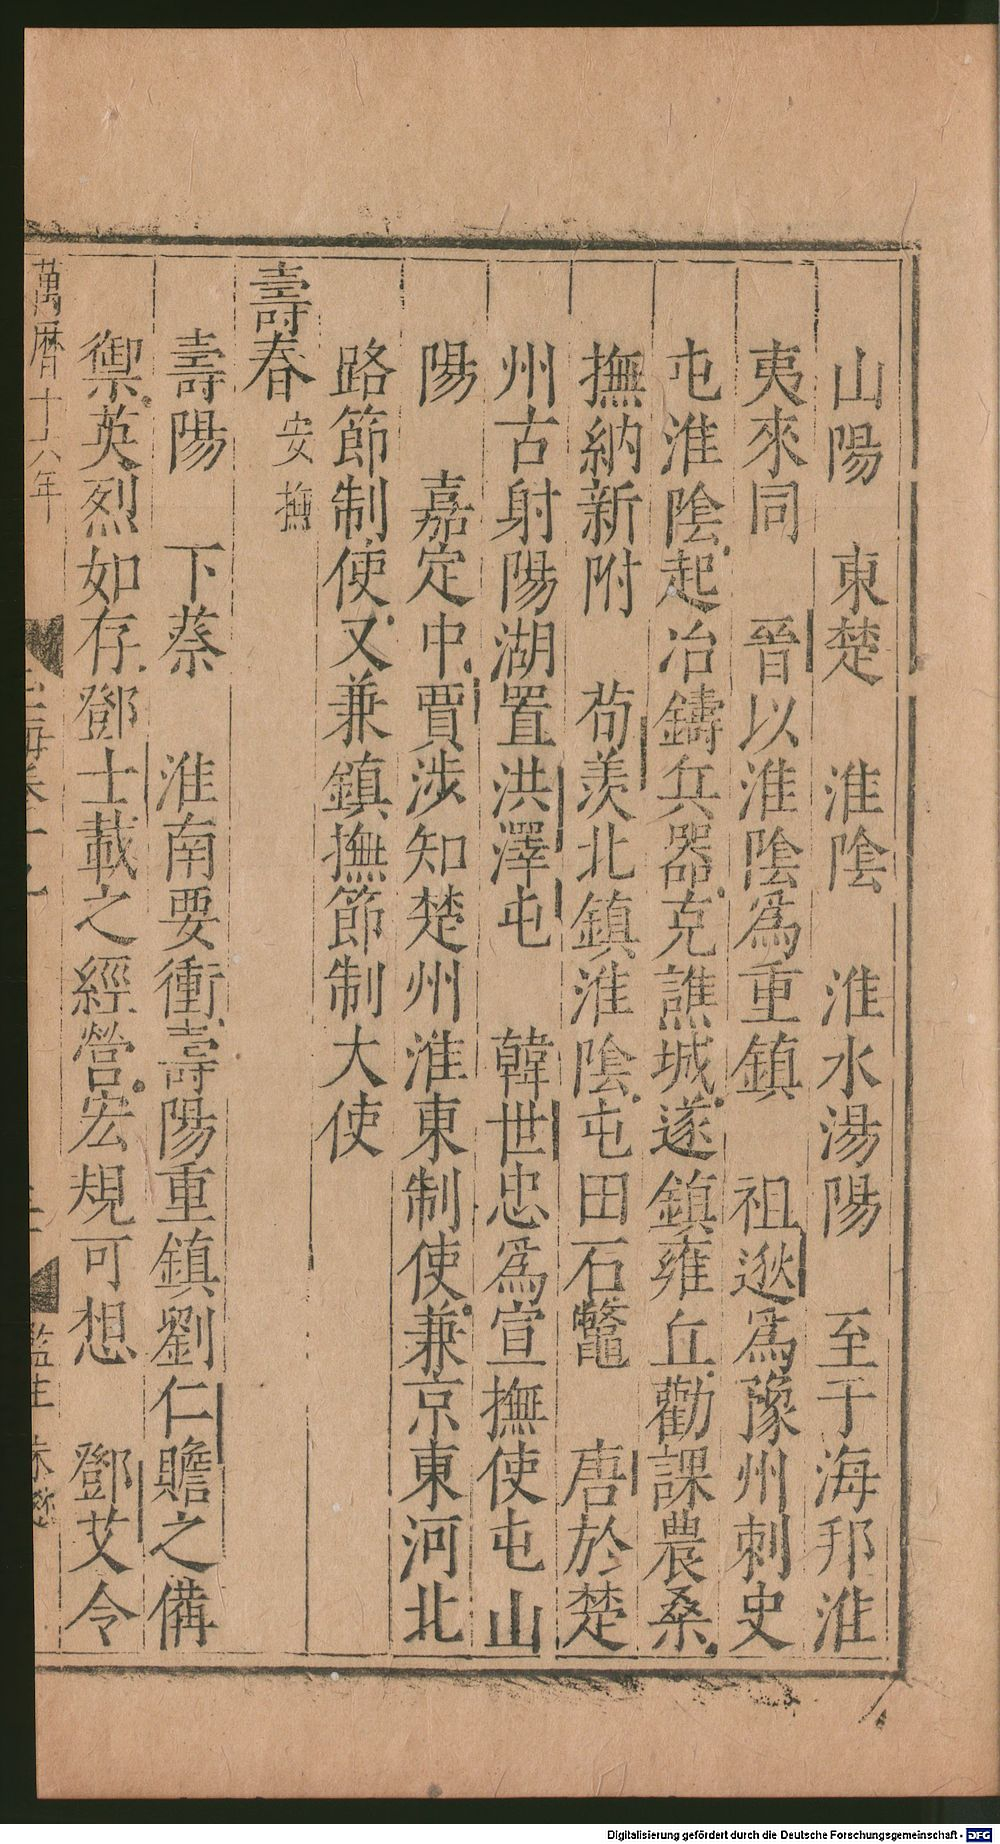 山陽　東楚　淮陰　淮水湯陽　至于海邦淮
夷來同　晉以淮陰爲重鎮　祖逖爲豫州刺史
屯淮陰起冶鑄兵器克譙城遂鎮雍丘勸課農桑
撫納新附　荀羨北鎮淮陰屯田石鼈　唐於楚
州古射陽湖置洪澤屯　韓世忠爲宣撫使屯山
陽　嘉定中賈涉知楚州淮東制使兼京東河北
路節制使又兼鎮撫節制大使
壽春安撫
壽陽　下蔡　淮南要衝壽陽重鎮劉仁贍之備
禦英烈如存鄧士載之經營宏規可想　鄧艾令
萬曆十六年
監生
Digitalisierung gefördert durch die Deutsche Forschungsgemeinschaft - DFG